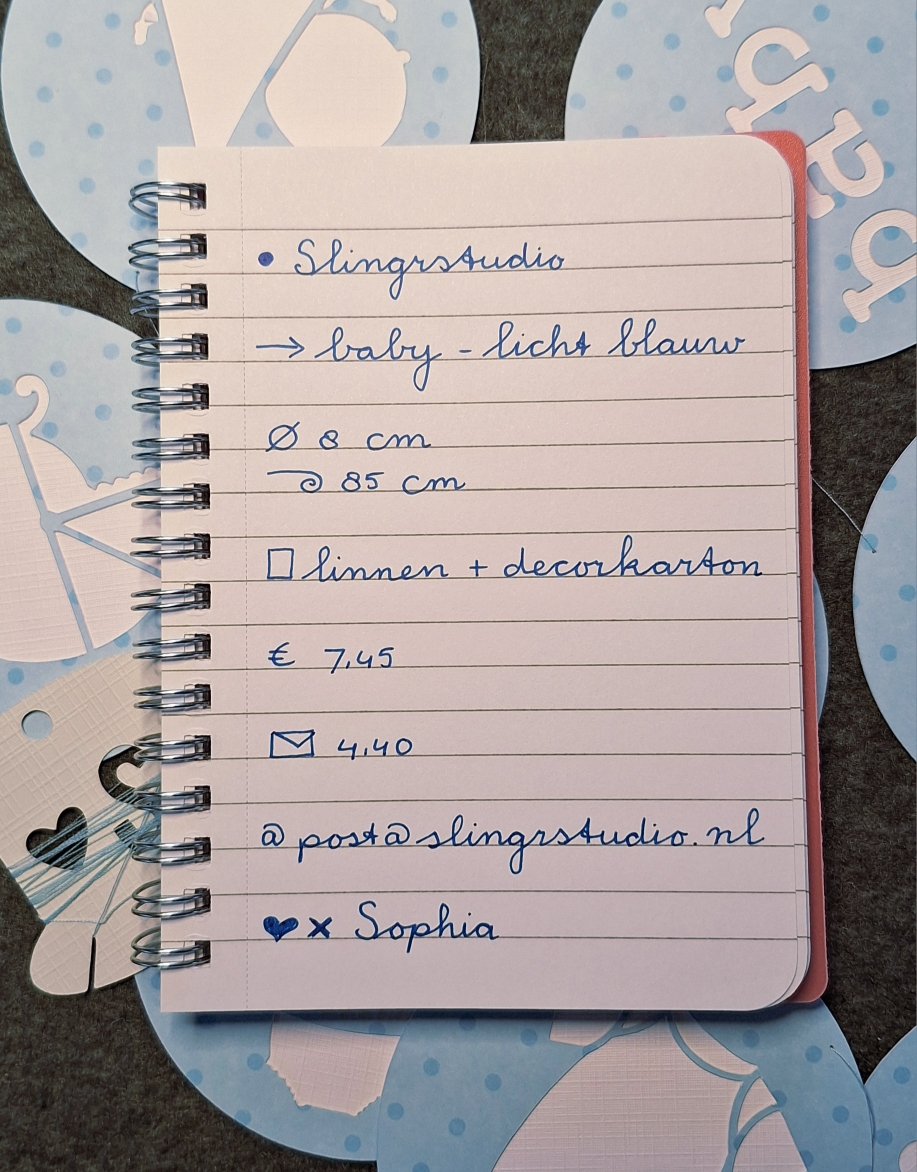 • Slingrstudio
→ baby - licht blauw
Ø 8 cm
85 cm
linnen + decorkarton
€ 7,45
4,40
@ post@slingrstudio.nl
♥ x Sophia